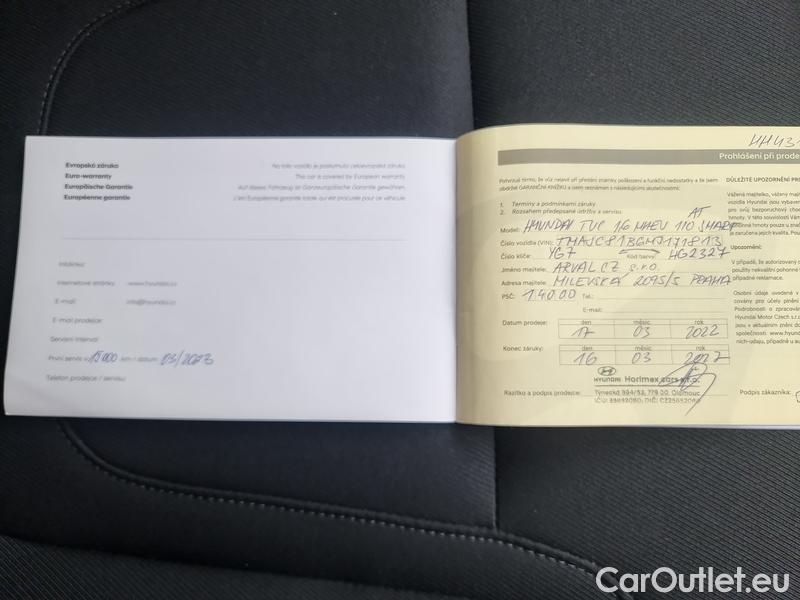 Evropská záruka
Na toto vozidlo je poskytnuta celoevropská záruka
Euro-warranty
This car is covered by European warranty
Europäische Garantie
Auf dieses Fahrzeug ist Ganzeuropäische Garantie gewähren.
Européenne garantie
L'est Européenne garantie totale qui est procurée pour ce véhicule
Infolinka:
Internetové stránky: www.hyundai.cz
E-mail: info@hyundai.cz
E-mail prodejce:
Servisní interval:
První servis v 15 000 km / datum: 03/2023
Telefon prodejce / servisu:
Prohlášení při prode
Potvrzuji tímto, že vůz nejeví při předání známky poškození a funkční nedostatky a že jsem
obdržel GARANČNÍ KNÍŽKU a jsem seznámen s následujícími skutečnostmi:
1. Termíny a podmínkami záruky
2. Rozsahem předepsané údržby a servisu
AT
Model: HYUNDAI TUC 1.6 MHEV 110 SMART
Číslo vozidla (VIN): TMAJC81BGMJ171813
Číslo klíče: YG7 Kód barvy: HG2327
Jméno majitele: ARVAL CZ s.r.o.
Adresa majitele: MILEVSKÁ 2095/5 PRAHA
PSČ: 140 00 Tel.:
E-mail:
Datum prodeje: den měsíc rok
17 03 2022
Konec záruky: den měsíc rok
16 03 2027
HYUNDAI Horimex cars s.r.o.
Razítko a podpis prodejce: Týnecká 894/53, 779 00 Olomouc
Podpis zákazníka:
DŮLEŽITÉ UPOZORNĚNÍ PRO
Vážená majitelko, vážený maji
vozidla Hyundai jsou vybaven
pro svůj bezporuchový chod
hmoty. V této souvislosti Vám
Upozornění:
V případě, že autorizovaný
použije nekvalitní pohonné
případné reklamace.
Osobní údaje uvedené v
covány pro účely plnění
Podrobnosti o zpracování
Hyundai Motor Czech s.r.o.
jsou v aktuálním znění do
společnosti: www.hyund
ních-udaju, případně u au
CarOutlet.eu